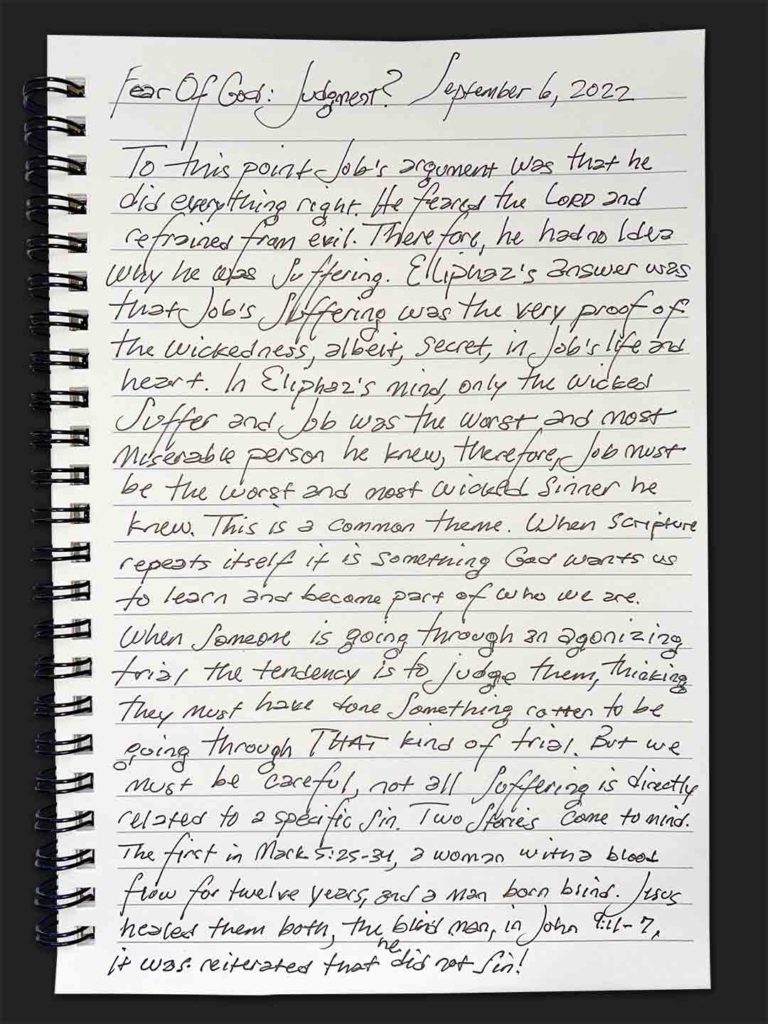 Fear Of God: Judgment? September 6, 2022
To this point Job's argument was that he
did everything right. He feared the LORD and
refrained from evil. Therefore, he had no Idea
why he was Suffering. Elliphaz's answer was
that Job's Suffering was the very proof of
the wickedness, albeit, secret, in Job's life and
heart. In Eliphaz's mind, only the wicked
Suffer and Job was the worst and most
Miserable person he knew, therefore, Job must
be the worst and most wicked Sinner he
knew. This is a common theme. When Scripture
repeats itself it is something God wants us
to learn and become part of who we are.
When Someone is going through an agonizing
trial the tendency is to judge them, thinking
they must have done Something rotten to be
going through THAT kind of trial. But we
must be careful, not all Suffering is directly
related to a specific Sin. Two Stories come to mind.
The first in Mark 5:25-34, a woman with a blood
flow for twelve years, and a man born blind. Jesus
healed them both, the blind man, in John 9:1-7,
it was reiterated that he did not Sin!